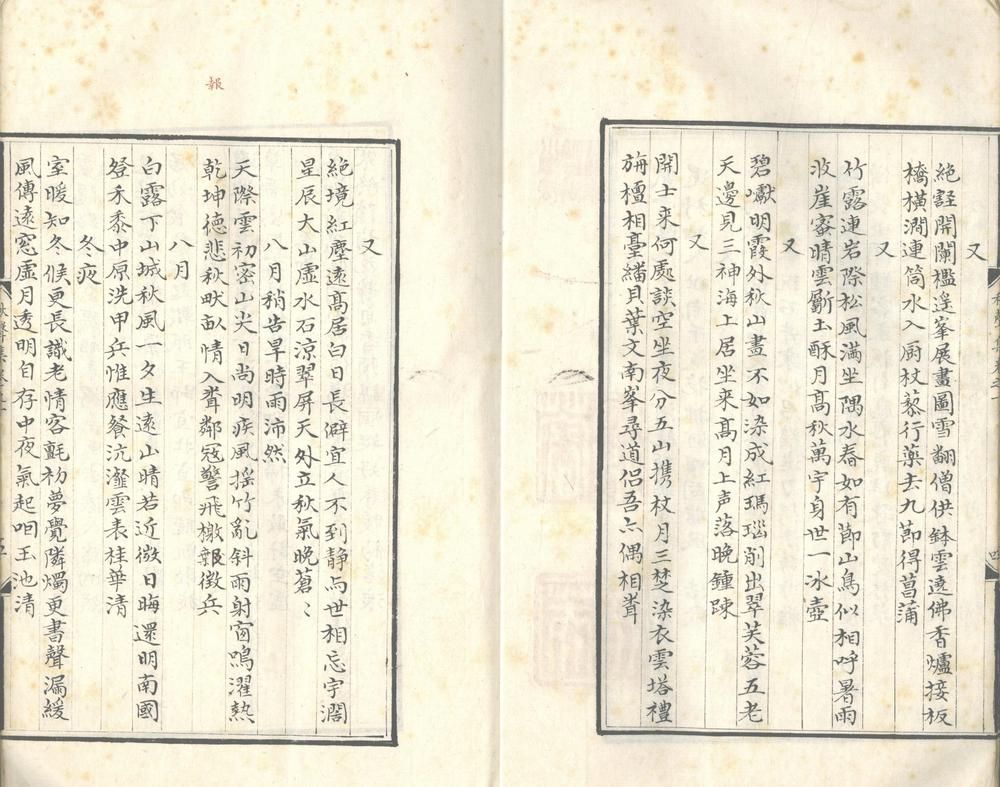 又
絶詿開闌檻遥峯展畫圖雪翻僧供鉢雲遶佛香爐接板
橋橫澗連筒水入厨杖藜行藥去九節得菖蒲
又
竹露連岩際松風滿坐隅水舂如有節山鳥似相呼暑雨
崖窑晴雲斸土酥月髙秋萬宇身世一冰壺
又
碧巘明霞外秋山畫不如染成紅瑪瑙削出翠芙蓉五老
天邊見三神海上居坐来髙月上声落晚鍾踈
又
開士来何處談空坐夜分五山携杖月三椘染衣雲塔禮
旃檀相臺繙貝葉文南峯尋道侣吾亦偶相聋
又
絶境紅塵遠髙居白日長僻宜人不到静与世相忘宇濶
星辰大山虛水石涼翠屏天外立秋氣晚蒼〻
八月稍告旱時雨沛然
天際雲初密山尖日尚明疾風揺竹亂斜雨射窗鳴濯熱
乾坤德悲秋畎畝情入聋鄰冦警飛檄報徴兵
八月
白露下山城秋風一夕生遠山晴若近微日晦還明南國
登禾黍中原洗甲兵惟應餐沆瀣雲表桂華清
冬夜
室暖知冬候更長識老情容氈初夢覺隣燭更書聲漏緩
風傳遠窓虛月透明自存中夜氣起咽玉池清
報